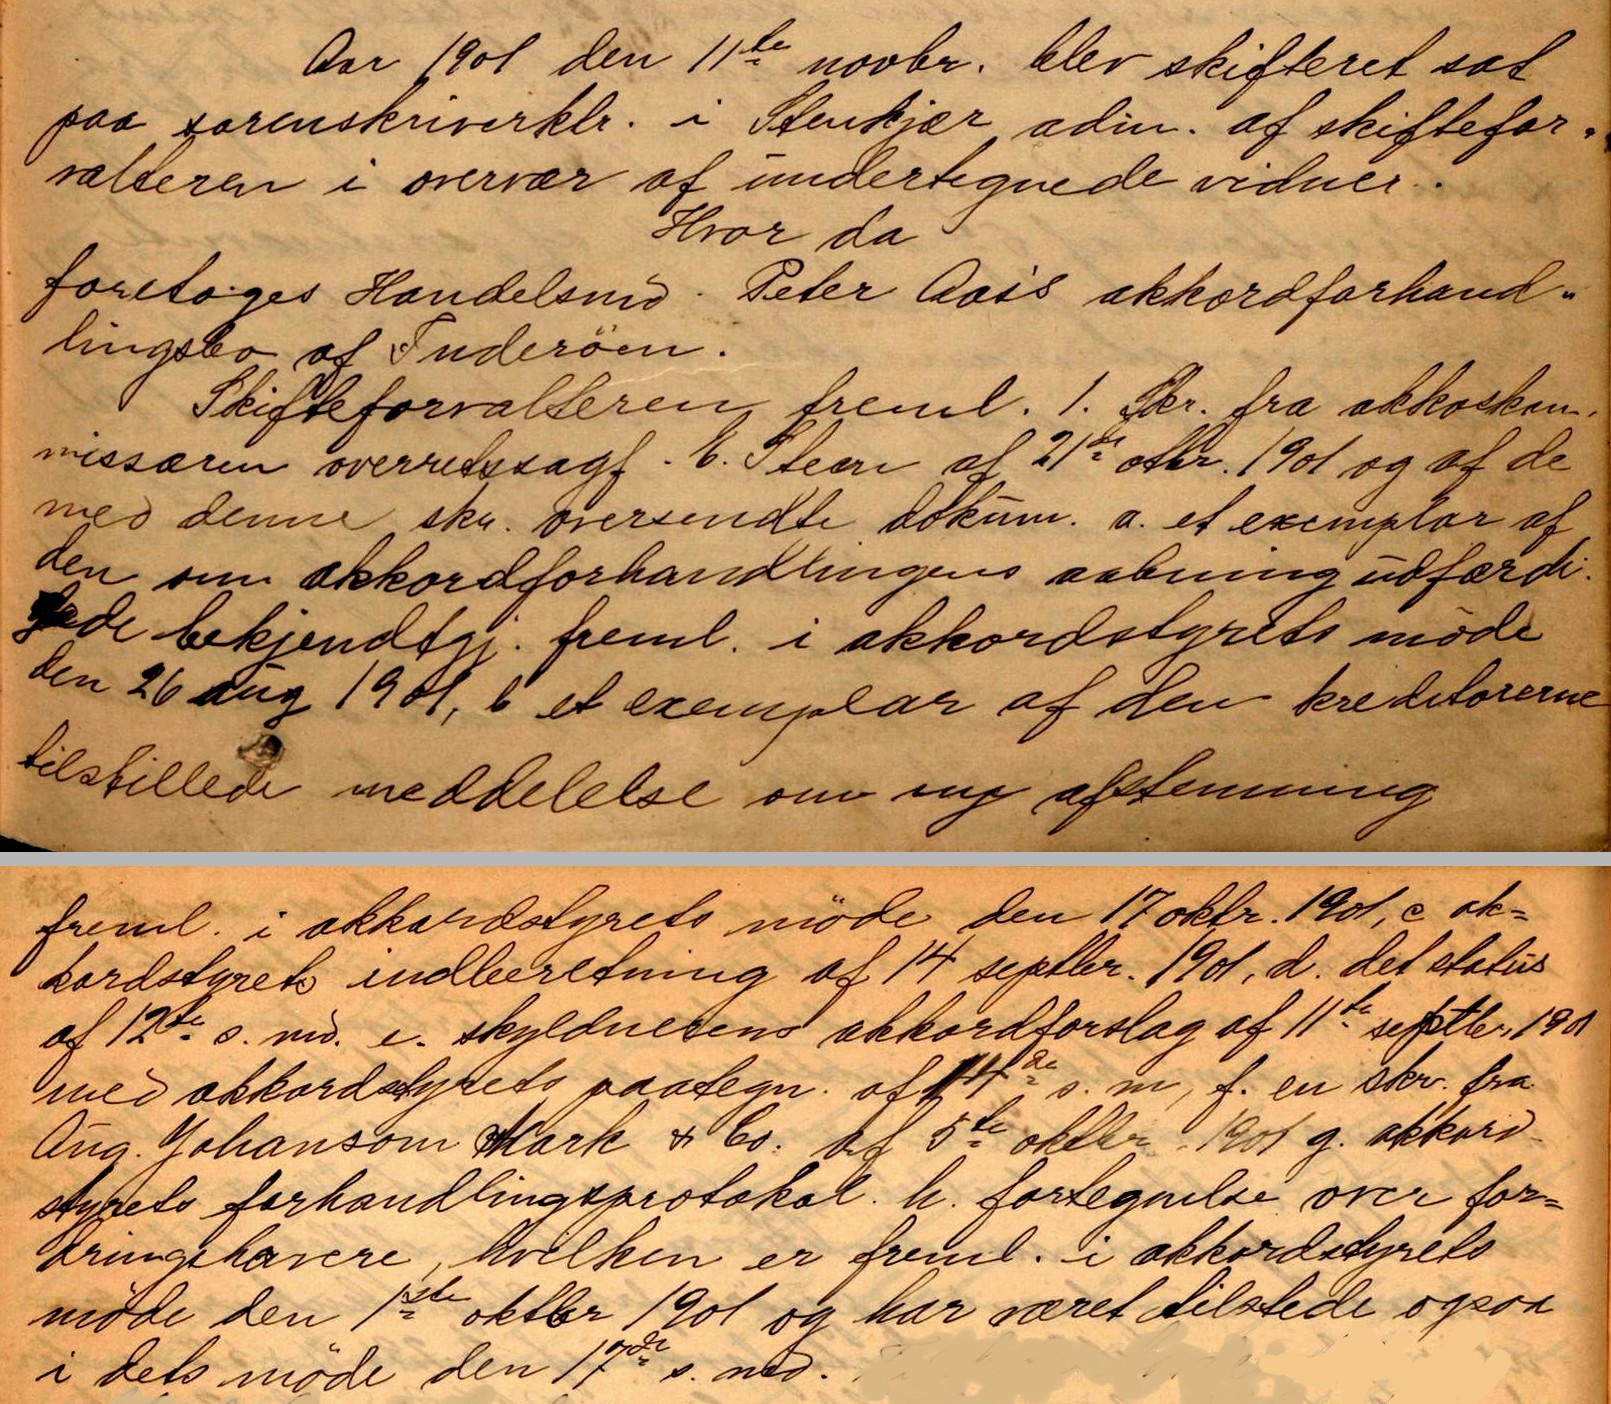 Aar 1901 den 11te novbr. blev skifteret sat
paa sorenskriverktr. i Stenkjær adm. af skiftefor-
valteren i overvær af undertegnede vidner.
Hvor da
foretoges Handelsmd. Peter Aas's akkordforhand-
lingsbo af Inderöen.
Skifteforvalteren freml. 1. Skr. fra akkoskom-
missæren overretssagf. E. Steen af 21de oktbr. 1901 og af de
med denne skr. oversendte dokum. a. et exemplar af
den om akkordforhandlingens aabning udfærdi-
gede bekjendtgj. freml. i akkordstyrets möde
den 26 aug 1901, b et exemplar af den kreditorerne
tilstillede meddelelse om ny afstemning
freml. i akkordstyrets möde den 17 oktr. 1901, c ak=
kordstyrets indberetning af 14 septbr. 1901, d. det status
af 12te s. md. e. skyldnerens akkordforslag af 11te septbr. 1901
med akkordstyrets paategn. af 14de s. m, f. en skr. fra
Aug. Johansom Mark & Co. af 5te oktbr. 1901 g. akkord-
styrets forhandlingsprotokol. h. fortegnelse over for=
dringshavere, hvilken er freml. i akkordstyrets
möde den 1ste oktbr 1901 og har været tilstede ogsaa
i dets möde den 17de s. md.